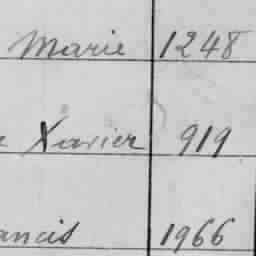 Marie 1248
Xavier 919
ancis 1966